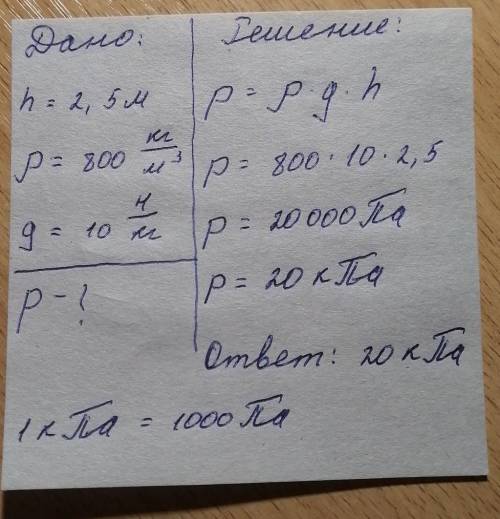 Дано:
h = 2,5 м
ρ = 800 кг/м³
g = 10 Н/кг
p - ?
Решение:
p = ρ · g · h
p = 800 · 10 · 2,5
p = 20000 Па
p = 20 кПа
Ответ: 20 кПа
1 кПа = 1000 Па